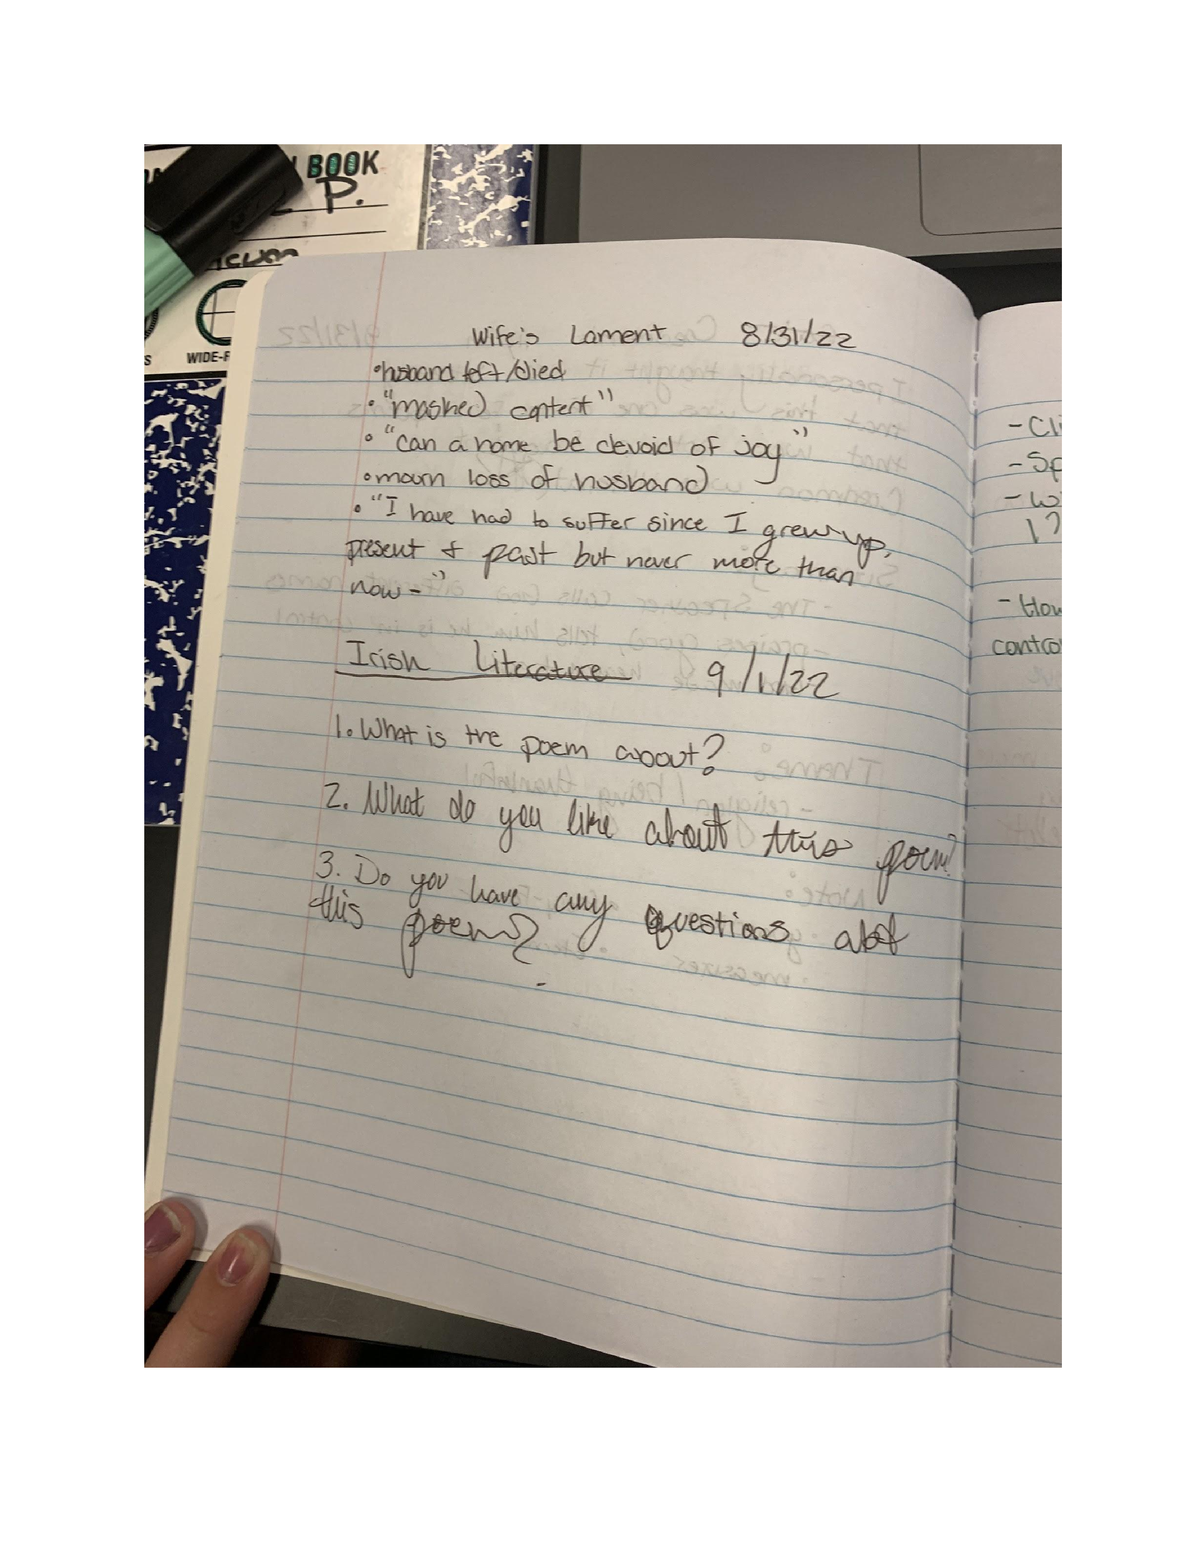 BOOK
P.
WIDE-R
Wife's Lament 8/31/22
•husband left/died
• "masked content"
• "can a home be devoid of joy"
• mourn loss of husband
• "I have had to suffer since I grew up,
present & past but never more than
now-"
Irish Literature 9/1/22
1. What is the poem about?
2. What do you like about this poem?
3. Do you have any questions abt
this poem?
- Cli
- Sp
- w
1?
- How
contro